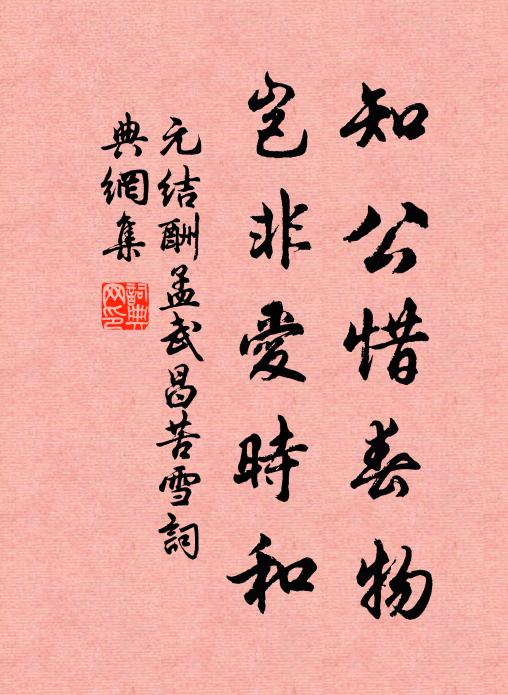 知公惜春物
豈非愛時和
元結酬孟武昌苦雪詞
典網集
詞典網印